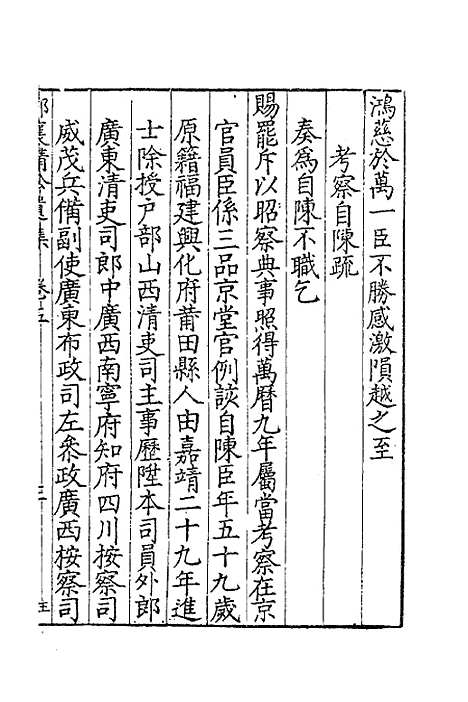 鴻慈於萬一臣不勝感激隕越之至
考察自陳疏
奏為自陳不職乞
賜罷斥以昭察典事照得萬曆九年屬當考察在京
官員臣係三品京堂官例該自陳臣年五十九歲
原籍福建興化府莆田縣人由嘉靖二十九年進
士除授戸部山西清吏司主事歷陞本司員外郎
廣東清吏司郎中廣西南寧府知府四川按察司
威茂兵備副使廣東布政司左叅政廣西按察司
襄惠公遺集 卷五